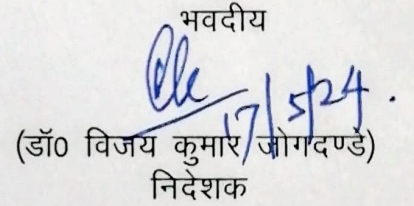 भवदीय
17/5/24.
(डॉ0 विजय कुमार जोगदण्डे)
निदेशक